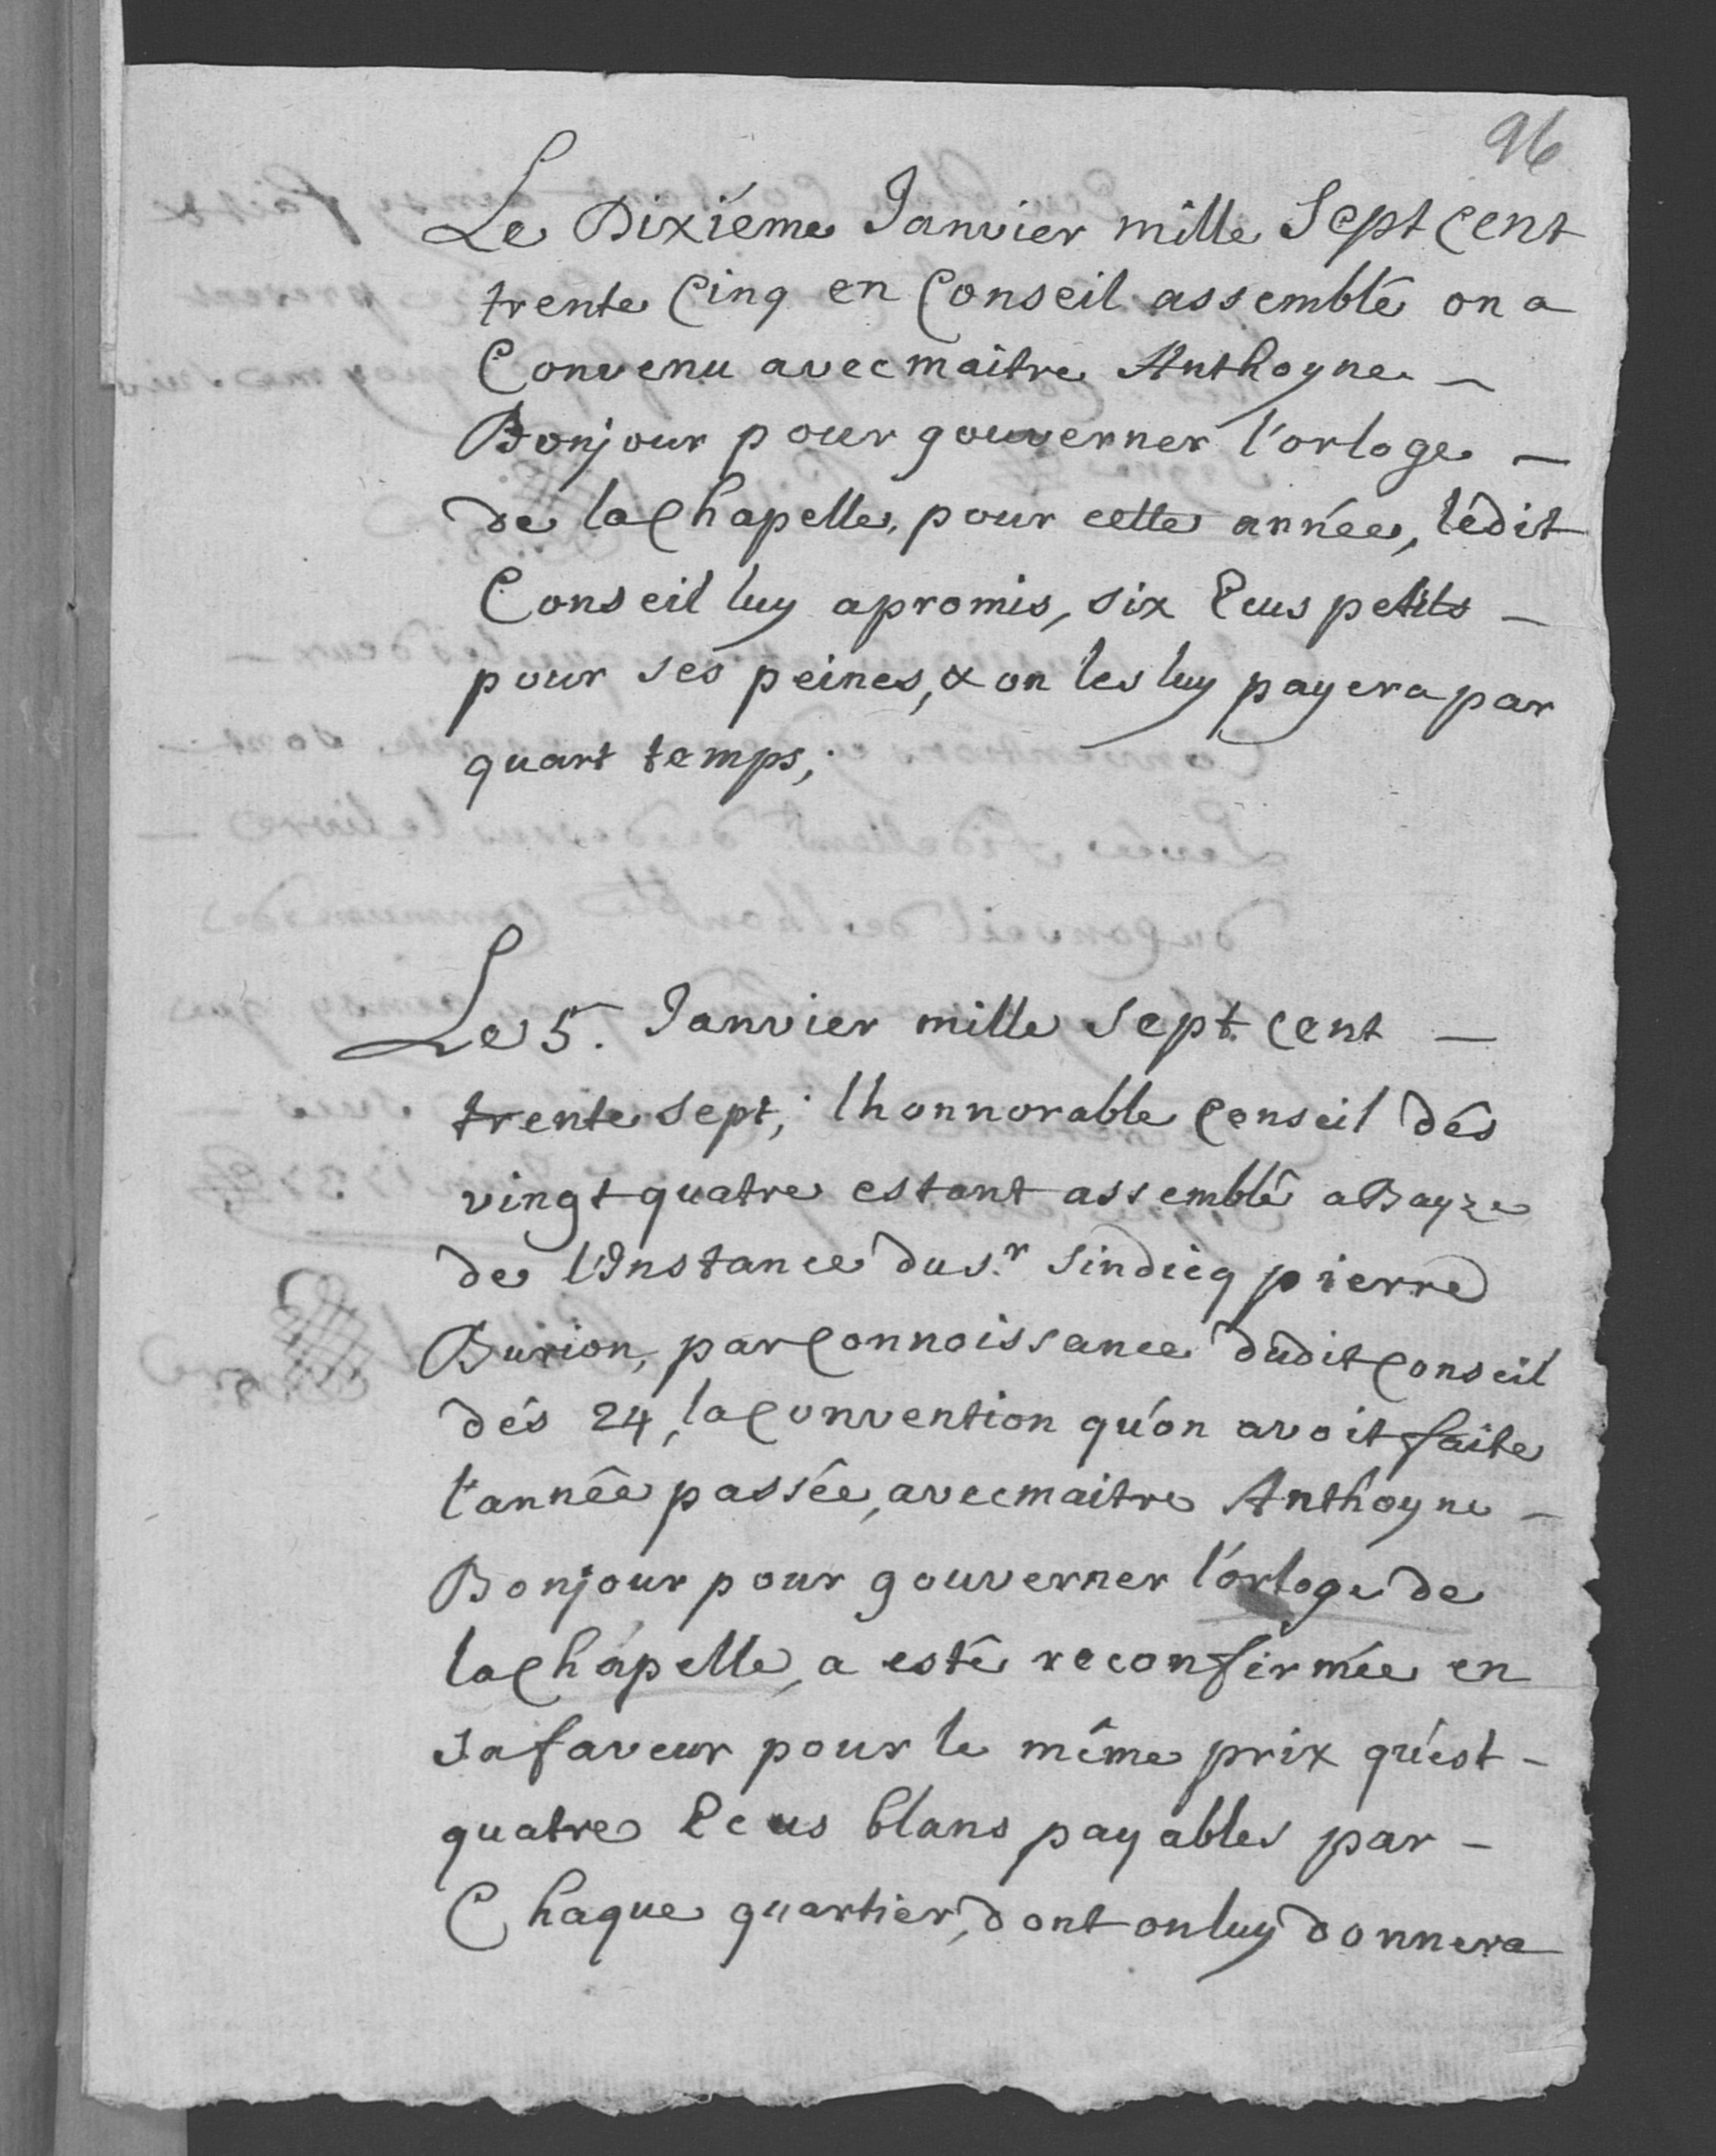 96
Le Dixiéme Janvier mille Sept Cent
trente Cinq en Conseil assemblé on a
Convenu avec maitre Anthoyne —
Bonjour pour gouverner l'orloge —
de la Chapelle, pour cette année, lédit
Conseil luy a promis, six Ecus petits —
pour ses peines, & on les luy payera par
quart temps;
Le 5. Janvier mille Sept Cent —
trente Sept; l'honnorable Conseil dés
vingt quatre estant assemblé a
de l'Instance du Sr. Sindicq pierre
Burion, par Connoissance dudit Conseil
dés 24, la Convention qu'on avoit faite
l'année passée, avec maitre Anthoyne —
Bonjour pour gouverner l'orloge de
la Chapelle, a esté reconfirmée en
sa faveur pour le même prix qu'est —
quatre Ecus blans payables par —
Chaque quartier, dont on luy donnera